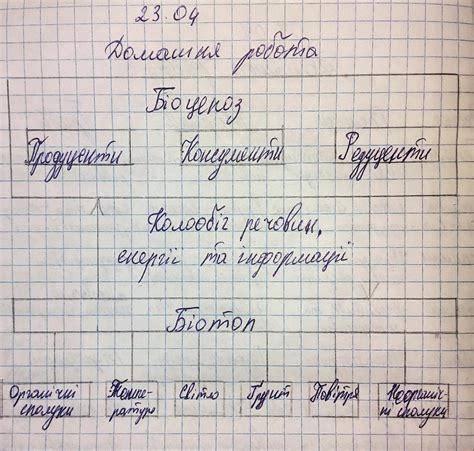 23.04
Домашня робота
Біоценоз
Продуценти Консументи Редуценти
Колообіг речовин,
енергії та інформації
Біотоп
Органічні сполуки Темпе-ратура Світло Ґрунт Повітря Неорганіч-ні сполуки